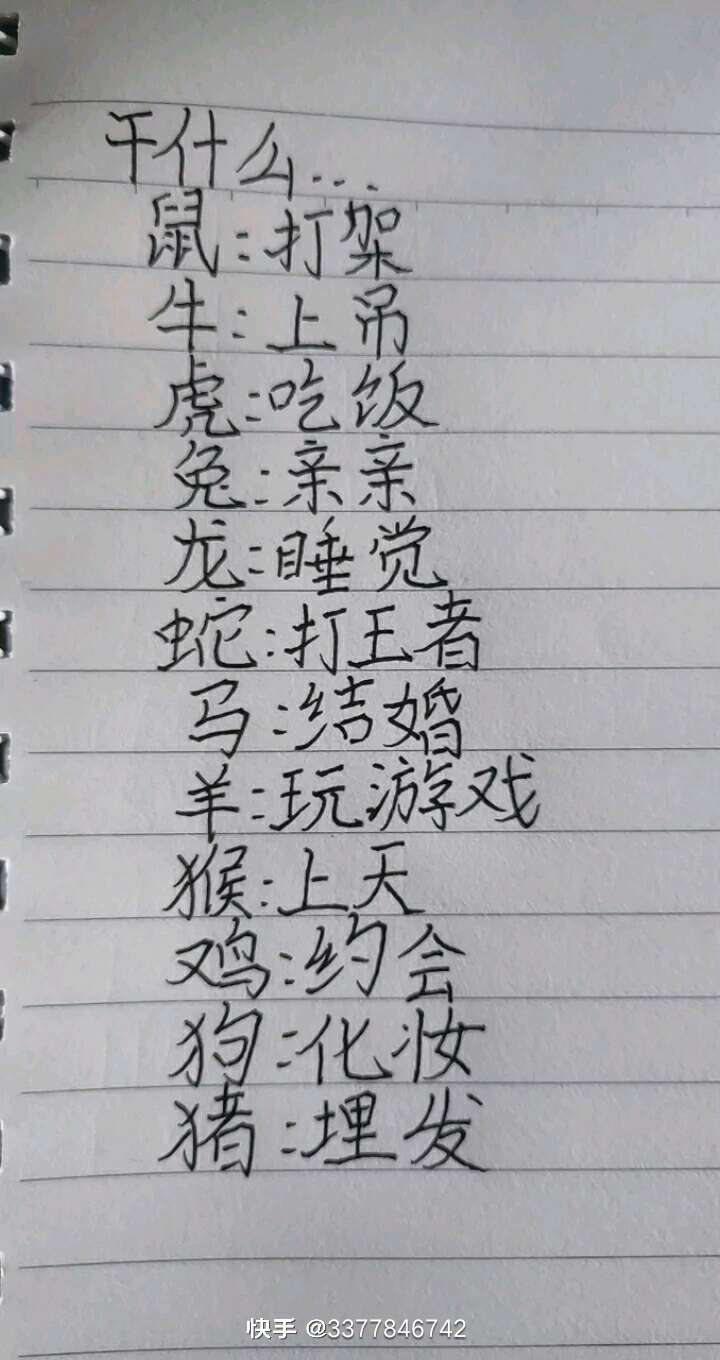 干什么...
鼠:打架
牛:上吊
虎:吃饭
兔:亲亲
龙:睡觉
蛇:打王者
马:结婚
羊:玩游戏
猴:上天
鸡:约会
狗:化妆
猪:埋发
快手 @3377846742